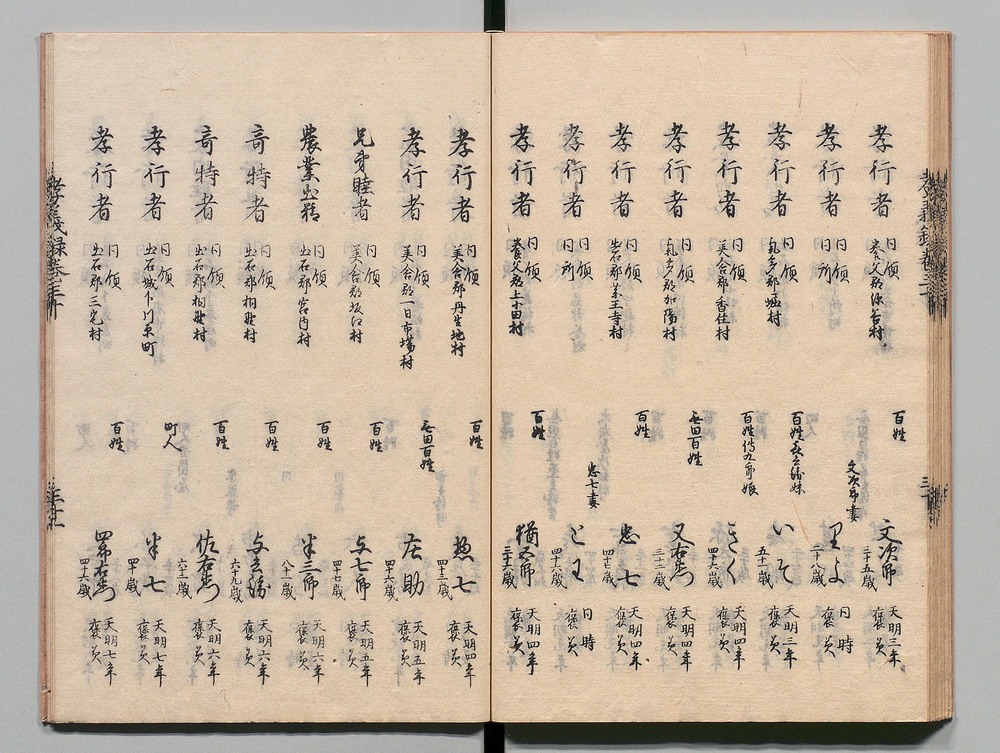 孝行者 同領 養父郡 百姓 文次郎 三十五歳 天明三年 褒美
孝行者 同領 同所 文次郎妻 里よ 二十八歳 同時 褒美
孝行者 同領 気多郡 百姓 いそ 五十一歳 天明三年 褒美
孝行者 同領 美含郡香住村 百姓傳九郎娘 きく 四十六歳 天明四年 褒美
孝行者 同領 気多郡加陽村 無田百姓 又右衛門 三十二歳 天明四年 褒美
孝行者 同領 出石郡 百姓 忠七 天明四年 褒美
孝行者 同領 同所 忠七妻 とわ 四十六歳 同時 褒美
孝行者 同領 養父郡上小田村 百姓 猶五郎 三十六歳 天明四年 褒美
孝行者 同領 美含郡丹生地村 百姓 惣七 四十三歳 天明四年 褒美
孝行者 同領 美含郡一日市場村 無田百姓 庄助 四十六歳 天明五年 褒美
兄弟睦者 同領 美含郡坂江村 百姓 与七郎 四十七歳 天明五年 褒美
農業出精 同領 出石郡宮内村 百姓 半三郎 八十一歳 天明六年 褒美
奇特者 同領 出石郡 百姓 六十九歳 天明六年 褒美
奇特者 同領 出石郡 百姓 佐右衛門 六十三歳 天明六年 褒美
孝行者 同領 出石城下川原町 町人 半七 四十歳 天明七年 褒美
孝行者 同領 出石郡三宅村 百姓 四郎右衛門 四十六歳 天明七年 褒美
孝義録巻三十 三十一